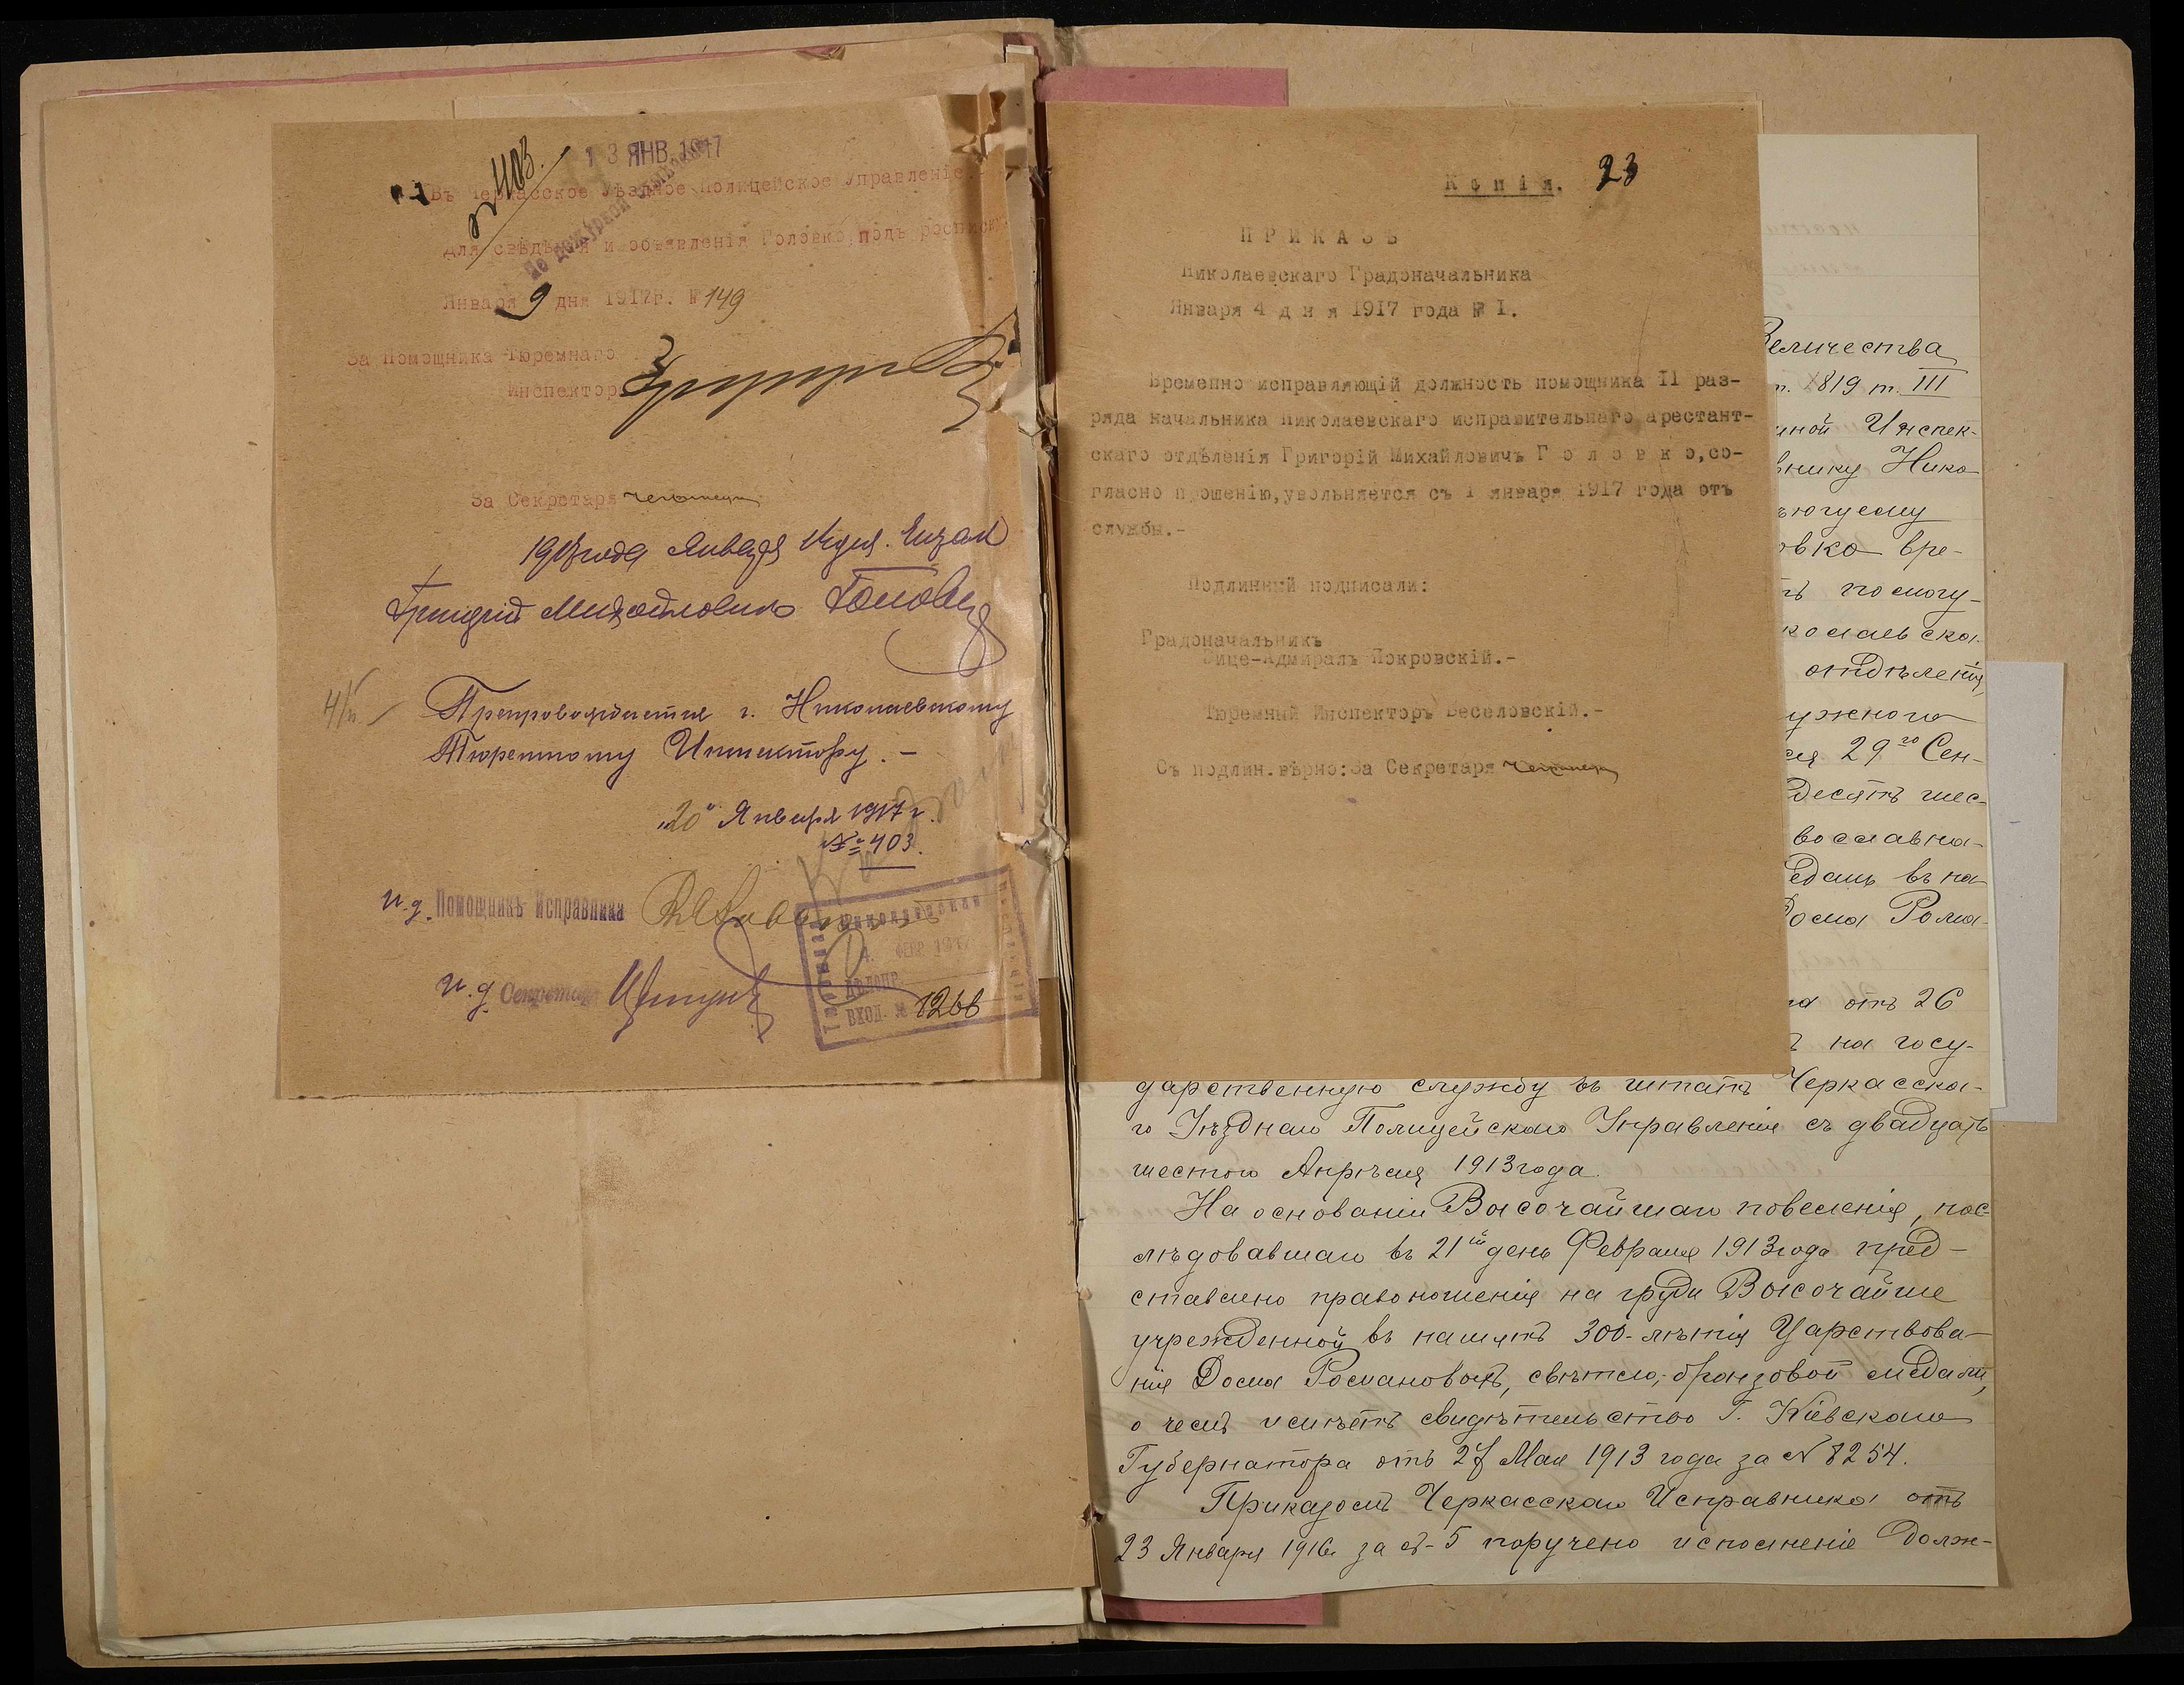 13 ЯНВ. 1917
№ 403.
Въ Черкасское Уѣздное Полицейское Управленіе
для свѣдѣнія и объявленія Головко, подъ росписку
Января 9 дня 1917г. № 149
За Помощника Тюремнаго
Инспектора
За Секретаря
1917 года Января
Григорій Михайловичъ Головко
Препровождается г. Николаевскому
Тюремному Инспектору. –
"20" Января 1917 г.
№ 403.
и.д. Помощникъ Исправника
и.д. Секретаря
Николаевская
Тюремная Инспекція
4 ФЕВР 1917
ВХОД. № 1266
Копія. 23
ПРИКАЗЪ
Николаевскаго Градоначальника
Января 4 дня 1917 года № I.
Временно исправляющій должность помощника II раз-
ряда начальника Николаевскаго исправительнаго арестант-
скаго отдѣленія Григорій Михайловичъ Головко, со-
гласно прошенію, увольняется съ I января 1917 года отъ
службы.-
Подлинный подписали:
Градоначальникъ
Вице-Адмиралъ Покровскій.-
Тюремный Инспекторъ Веселовскій.-
Съ подлин. вѣрно: За Секретаря
Величества
т. 1819 т. III
Инспек-
внику Нико
овко вре-
ть помощ-
колаевска-
отдѣленія
ужного
29го Сен-
десятъ шес-
вославна-
въ па-
Дома Рома-
отъ 26
на госу-
дарственную службу въ штатъ Черкасска-
го Уѣзднаго Полицейскаго Управленія съ двадцать
шестого Апрѣля 1913 года.
На основаніи Высочайшаго повеленія, пос-
лѣдовавшаго въ 21й день Февраля 1913 года пред-
ставлено право ношенія на груди Высочайше
учрежденной въ память 300-лѣтія Царствова-
нія Дома Романовыхъ, свѣтло-бронзовой медали,
о чемъ имѣетъ свидѣтельство Г. Кіевскаго
Губернатора отъ 27 Мая 1913 года за № 8254.
Приказомъ Черкасскаго Исправника отъ
23 Января 1916 за № 5 поручено исполненіе долж-